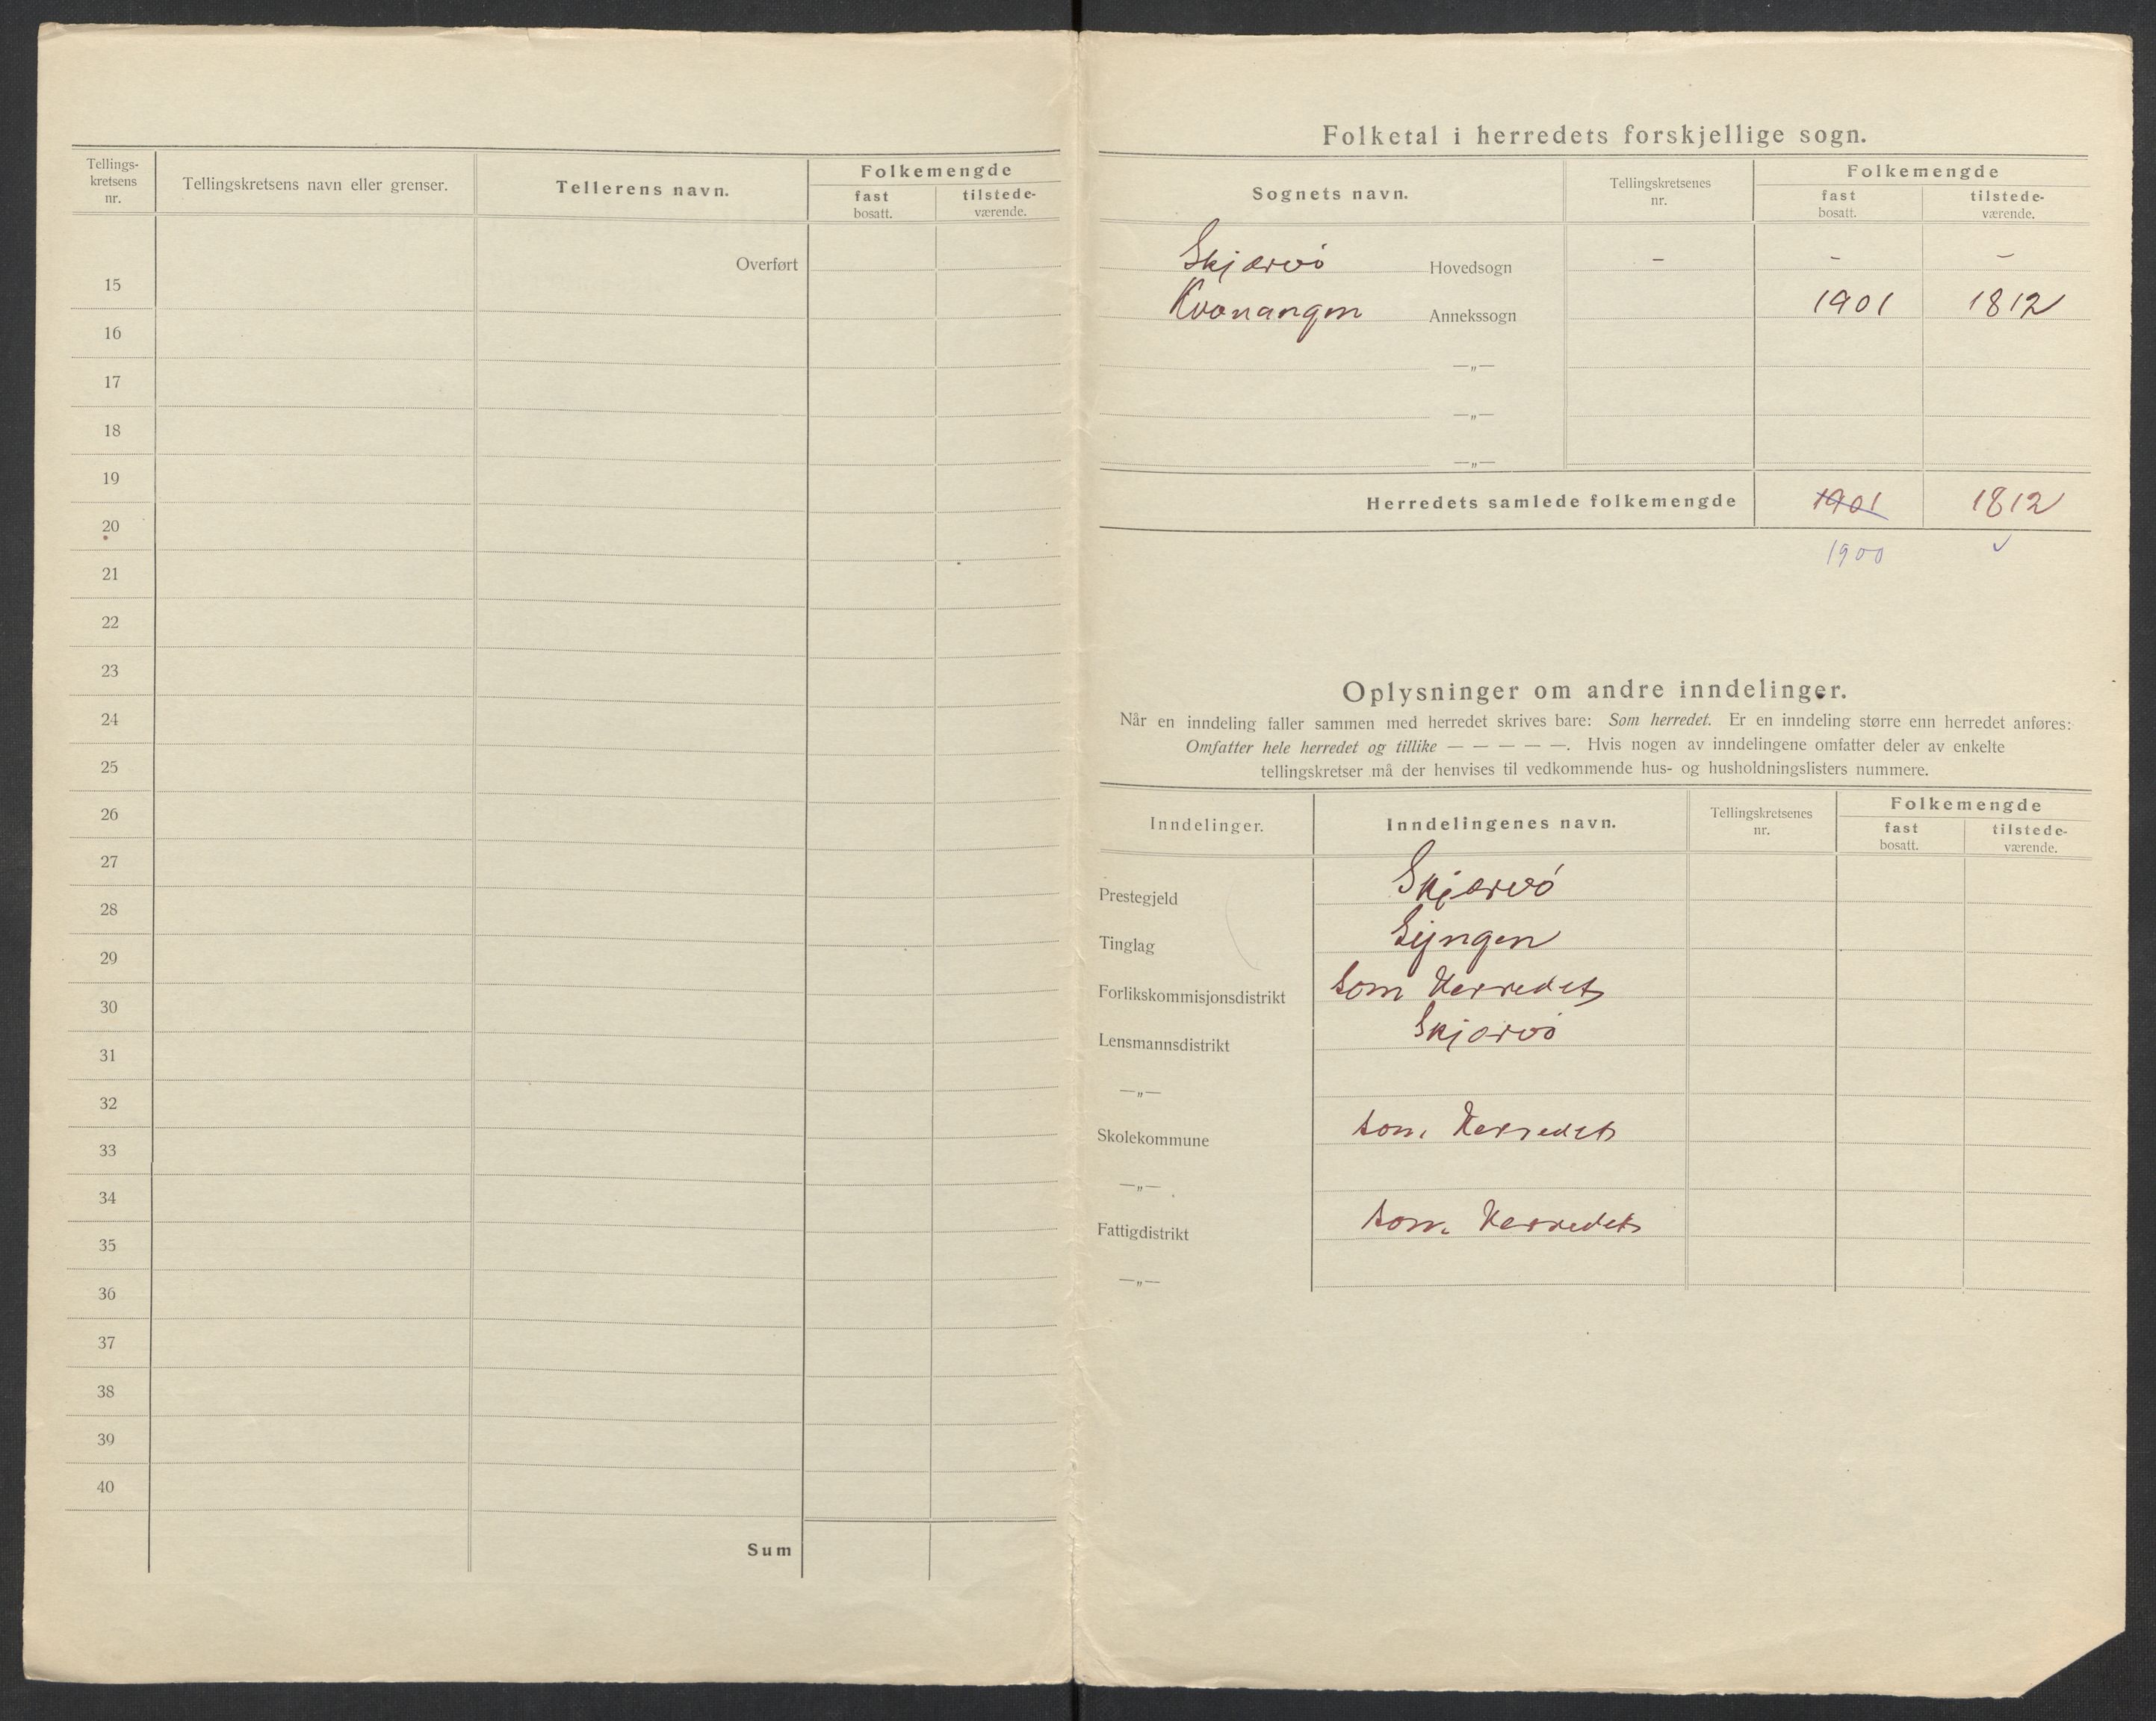 Tellings-
kretsens
nr.
Tellingskretsens navn eller grenser.
Tellerens navn.
Folkemengde
fast
bosatt.
tilstede-
værende.
Overført
15
16
17
18
19
20
21
22
23
24
25
26
27
28
29
30
31
32
33
34
35
36
37
38
39
40
Sum
Folketal i herredets forskjellige sogn.
Sognets navn.
Tellingskretsenes
nr.
Folkemengde
fast
bosatt.
tilstede-
værende.
Skjærvö Hovedsogn – – –
Kvænangen Annekssogn 1901 1812
—„—
—„—
—„—
Herredets samlede folkemengde 1901 1812
1900 ✓
Oplysninger om andre inndelinger.
Når en inndeling faller sammen med herredet skrives bare: Som herredet. Er en inndeling større enn herredet anføres:
Omfatter hele herredet og tillike — — — — —. Hvis nogen av inndelingene omfatter deler av enkelte
tellingskretser må der henvises til vedkommende hus- og husholdningslisters nummere.
Inndelinger.
Inndelingenes navn.
Tellingskretsenes
nr.
Folkemengde
fast
bosatt.
tilstede-
værende.
Prestegjeld Skjærvö
Tinglag Lyngen
Forlikskommisjonsdistrikt som Herredet
Lensmannsdistrikt Skjærvö
—„—
Skolekommune som Herredet
—„—
Fattigdistrikt som Herredet
—„—